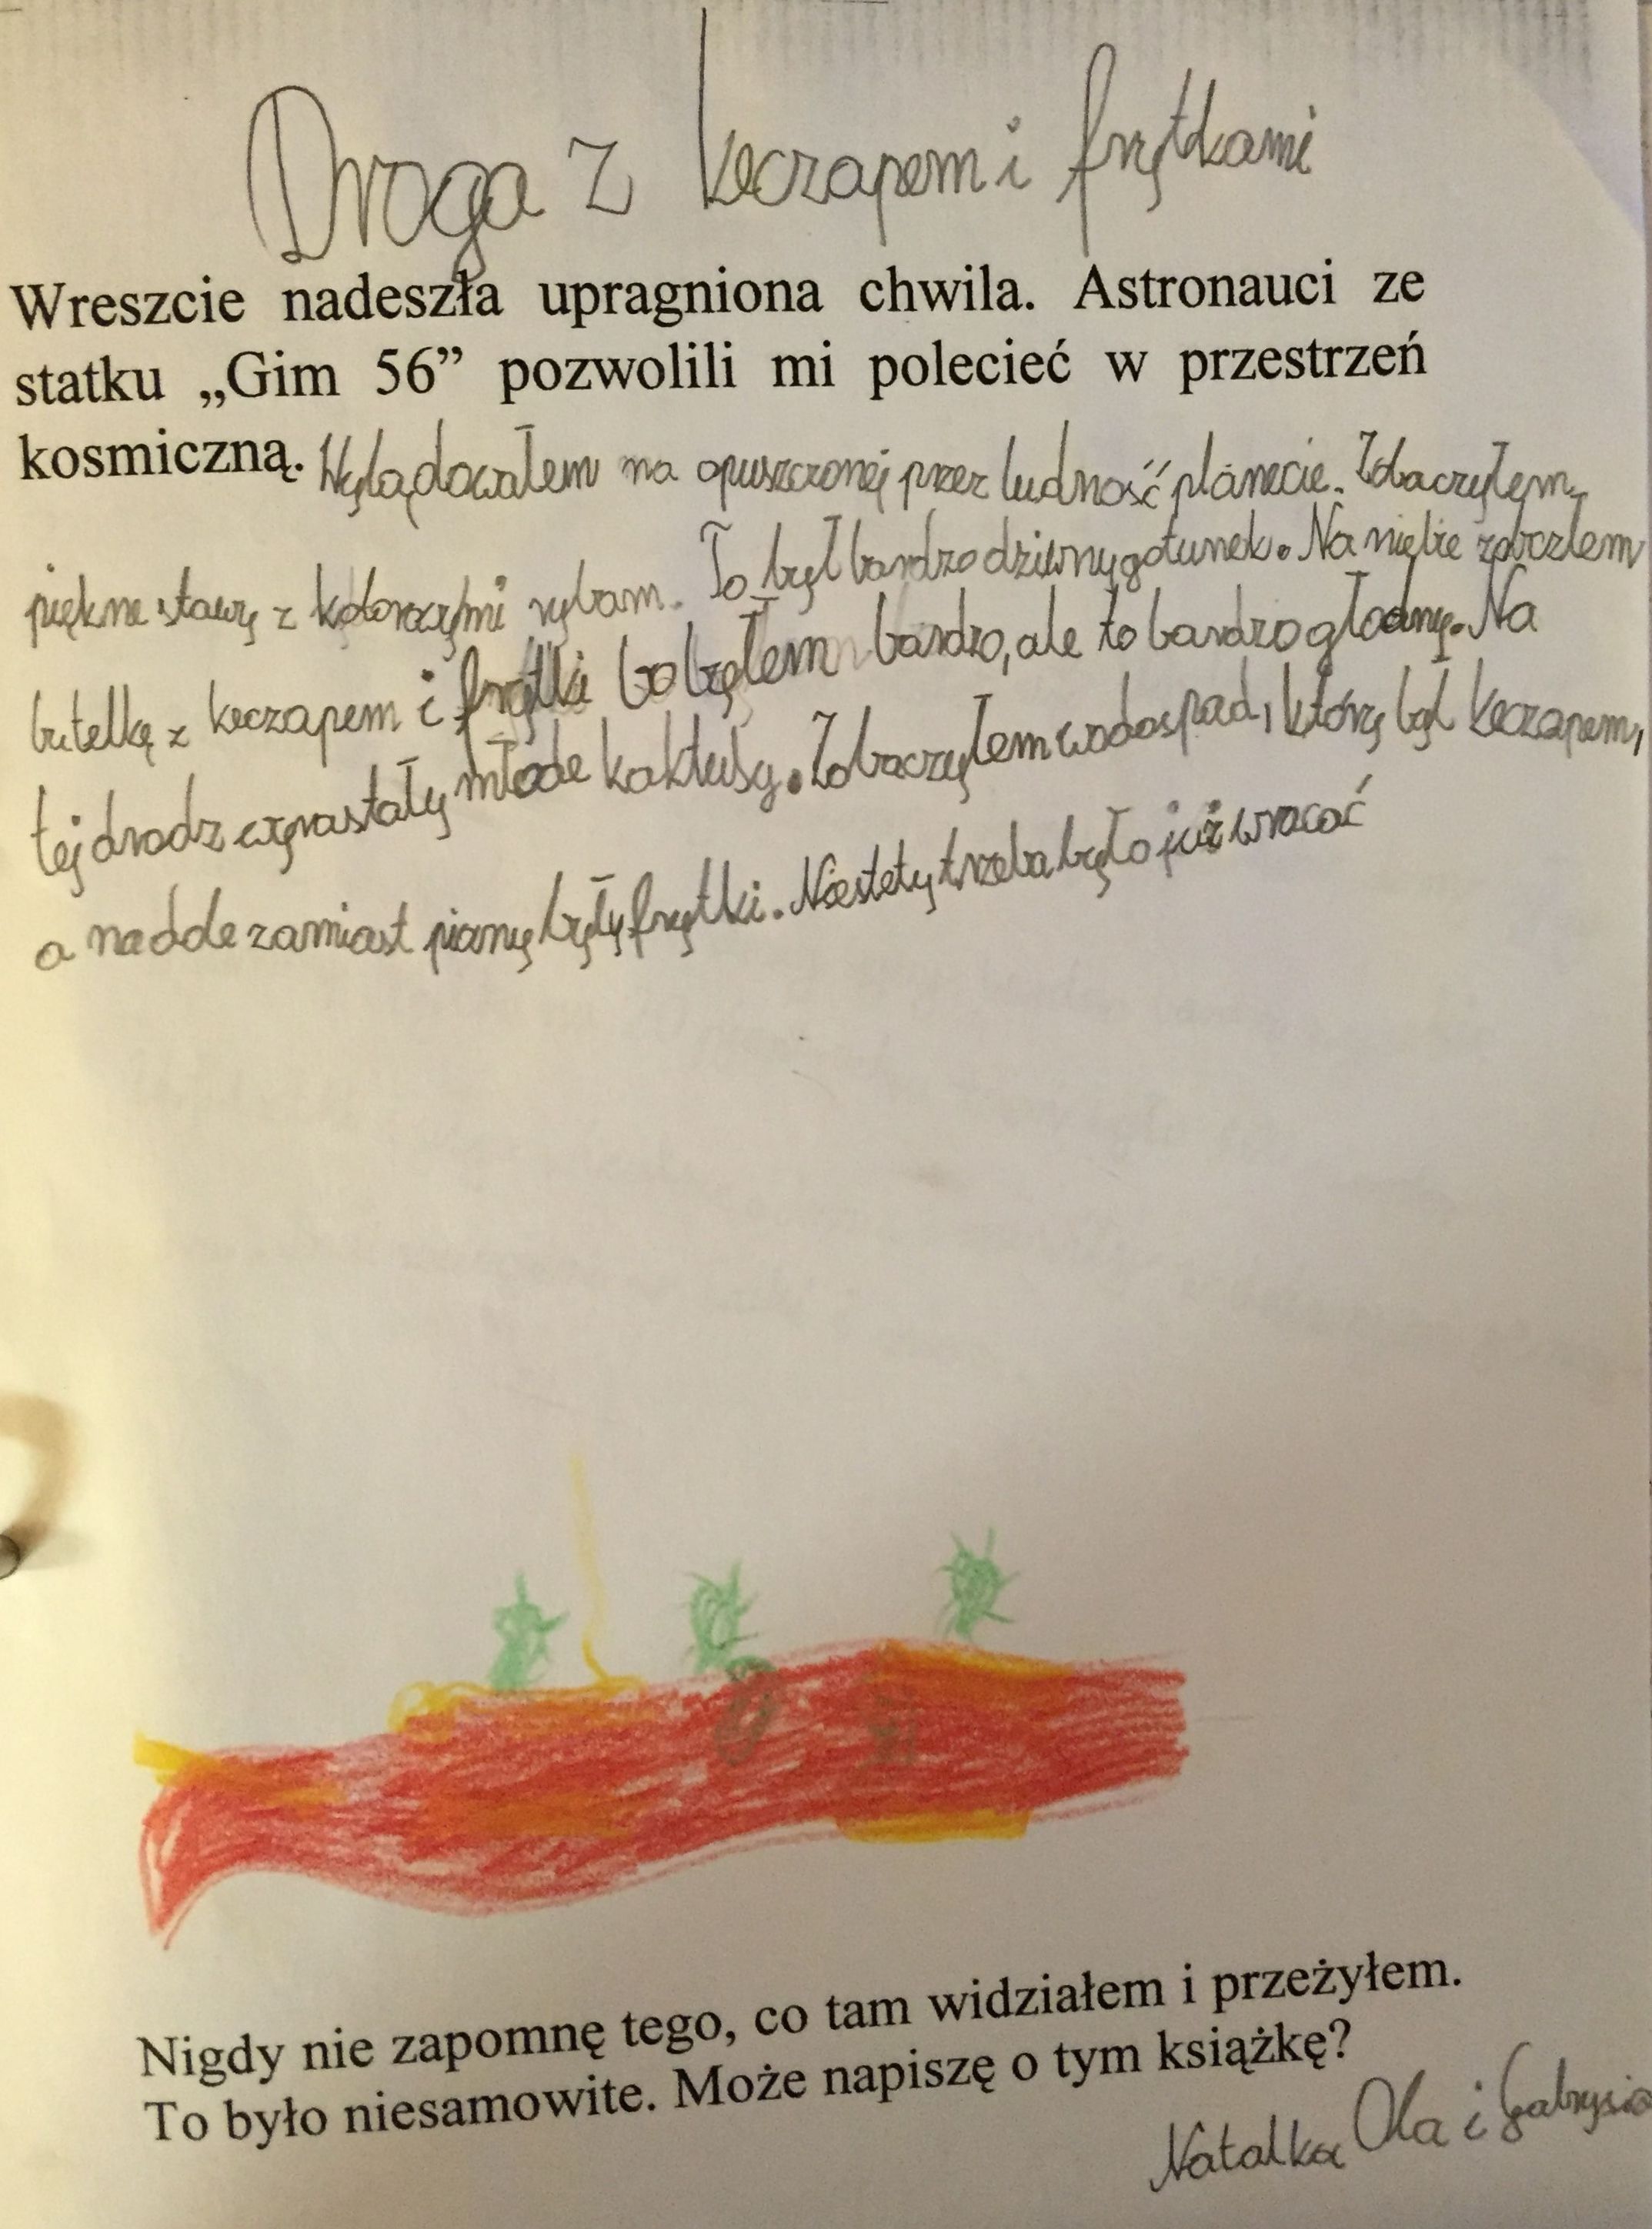 Droga z keczapem i frytkami
Wreszcie nadeszła upragniona chwila. Astronauci ze
statku „Gim 56” pozwolili mi polecieć w przestrzeń
kosmiczną. Wylądowałem na opuszczonej przez ludność planecie. Zobaczyłem
piękne stawy z kolorowymi rybam. To był bardzo dziwny gatunek. Na niebie zobczłem
butelkę z keczapem i frytki bo byłem bardzo, ale to bardzo głodny. Na
tej drodz wyrastały młode kaktusy. Zobaczyłem wodospad, który był keczapem,
a na dole zamiast piany były frytki. Niestety trzeba było już wracać
Nigdy nie zapomnę tego, co tam widziałem i przeżyłem.
To było niesamowite. Może napiszę o tym książkę?
Natalka Ola i Gabrysia